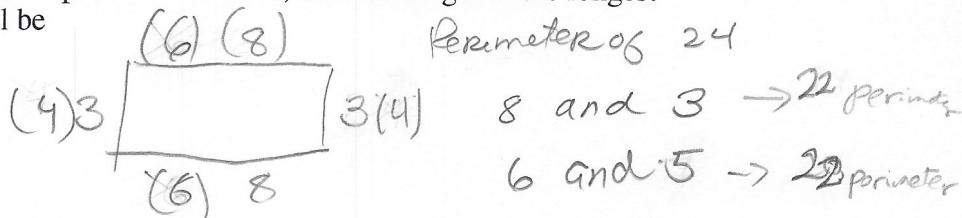 l be
(6) (8)
Perimeter of 24
(4)3
3(4)
8 and 3 → 22 perimeter
6 and 5 → 22 perimeter
(6) 8